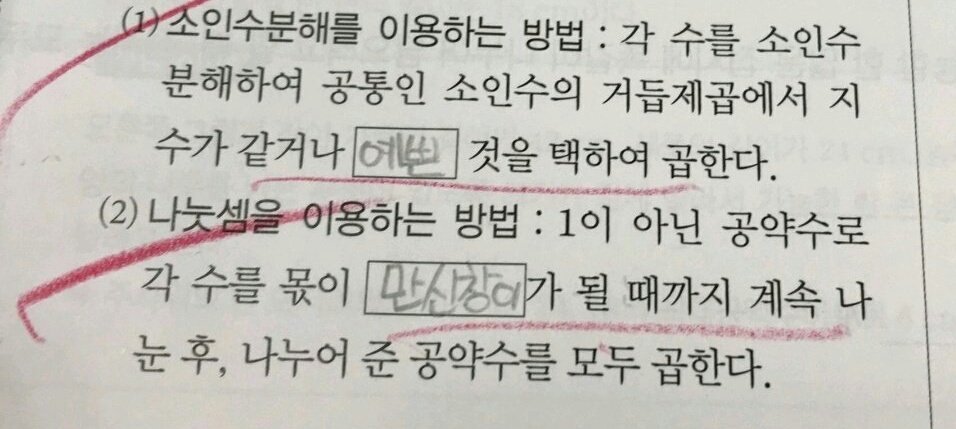 (1) 소인수분해를 이용하는 방법 : 각 수를 소인수
분해하여 공통인 소인수의 거듭제곱에서 지
수가 같거나 예쁜 것을 택하여 곱한다.
(2) 나눗셈을 이용하는 방법 : 1이 아닌 공약수로
각 수를 몫이 만신창이가 될 때까지 계속 나
눈 후, 나누어 준 공약수를 모두 곱한다.